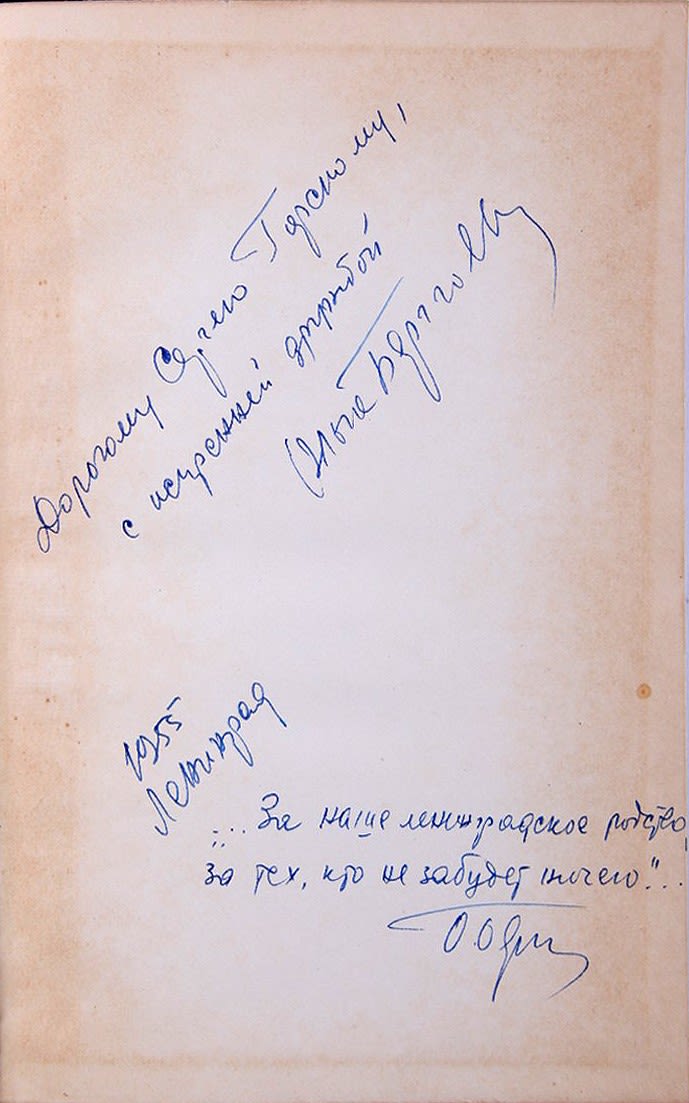 Дорогому Сергею Горскому,
с искренней дружбой
Ольга Берггольц
1955
Ленинград
„... За наше ленинградское родство,
за тех, кто не забудет ничего"...